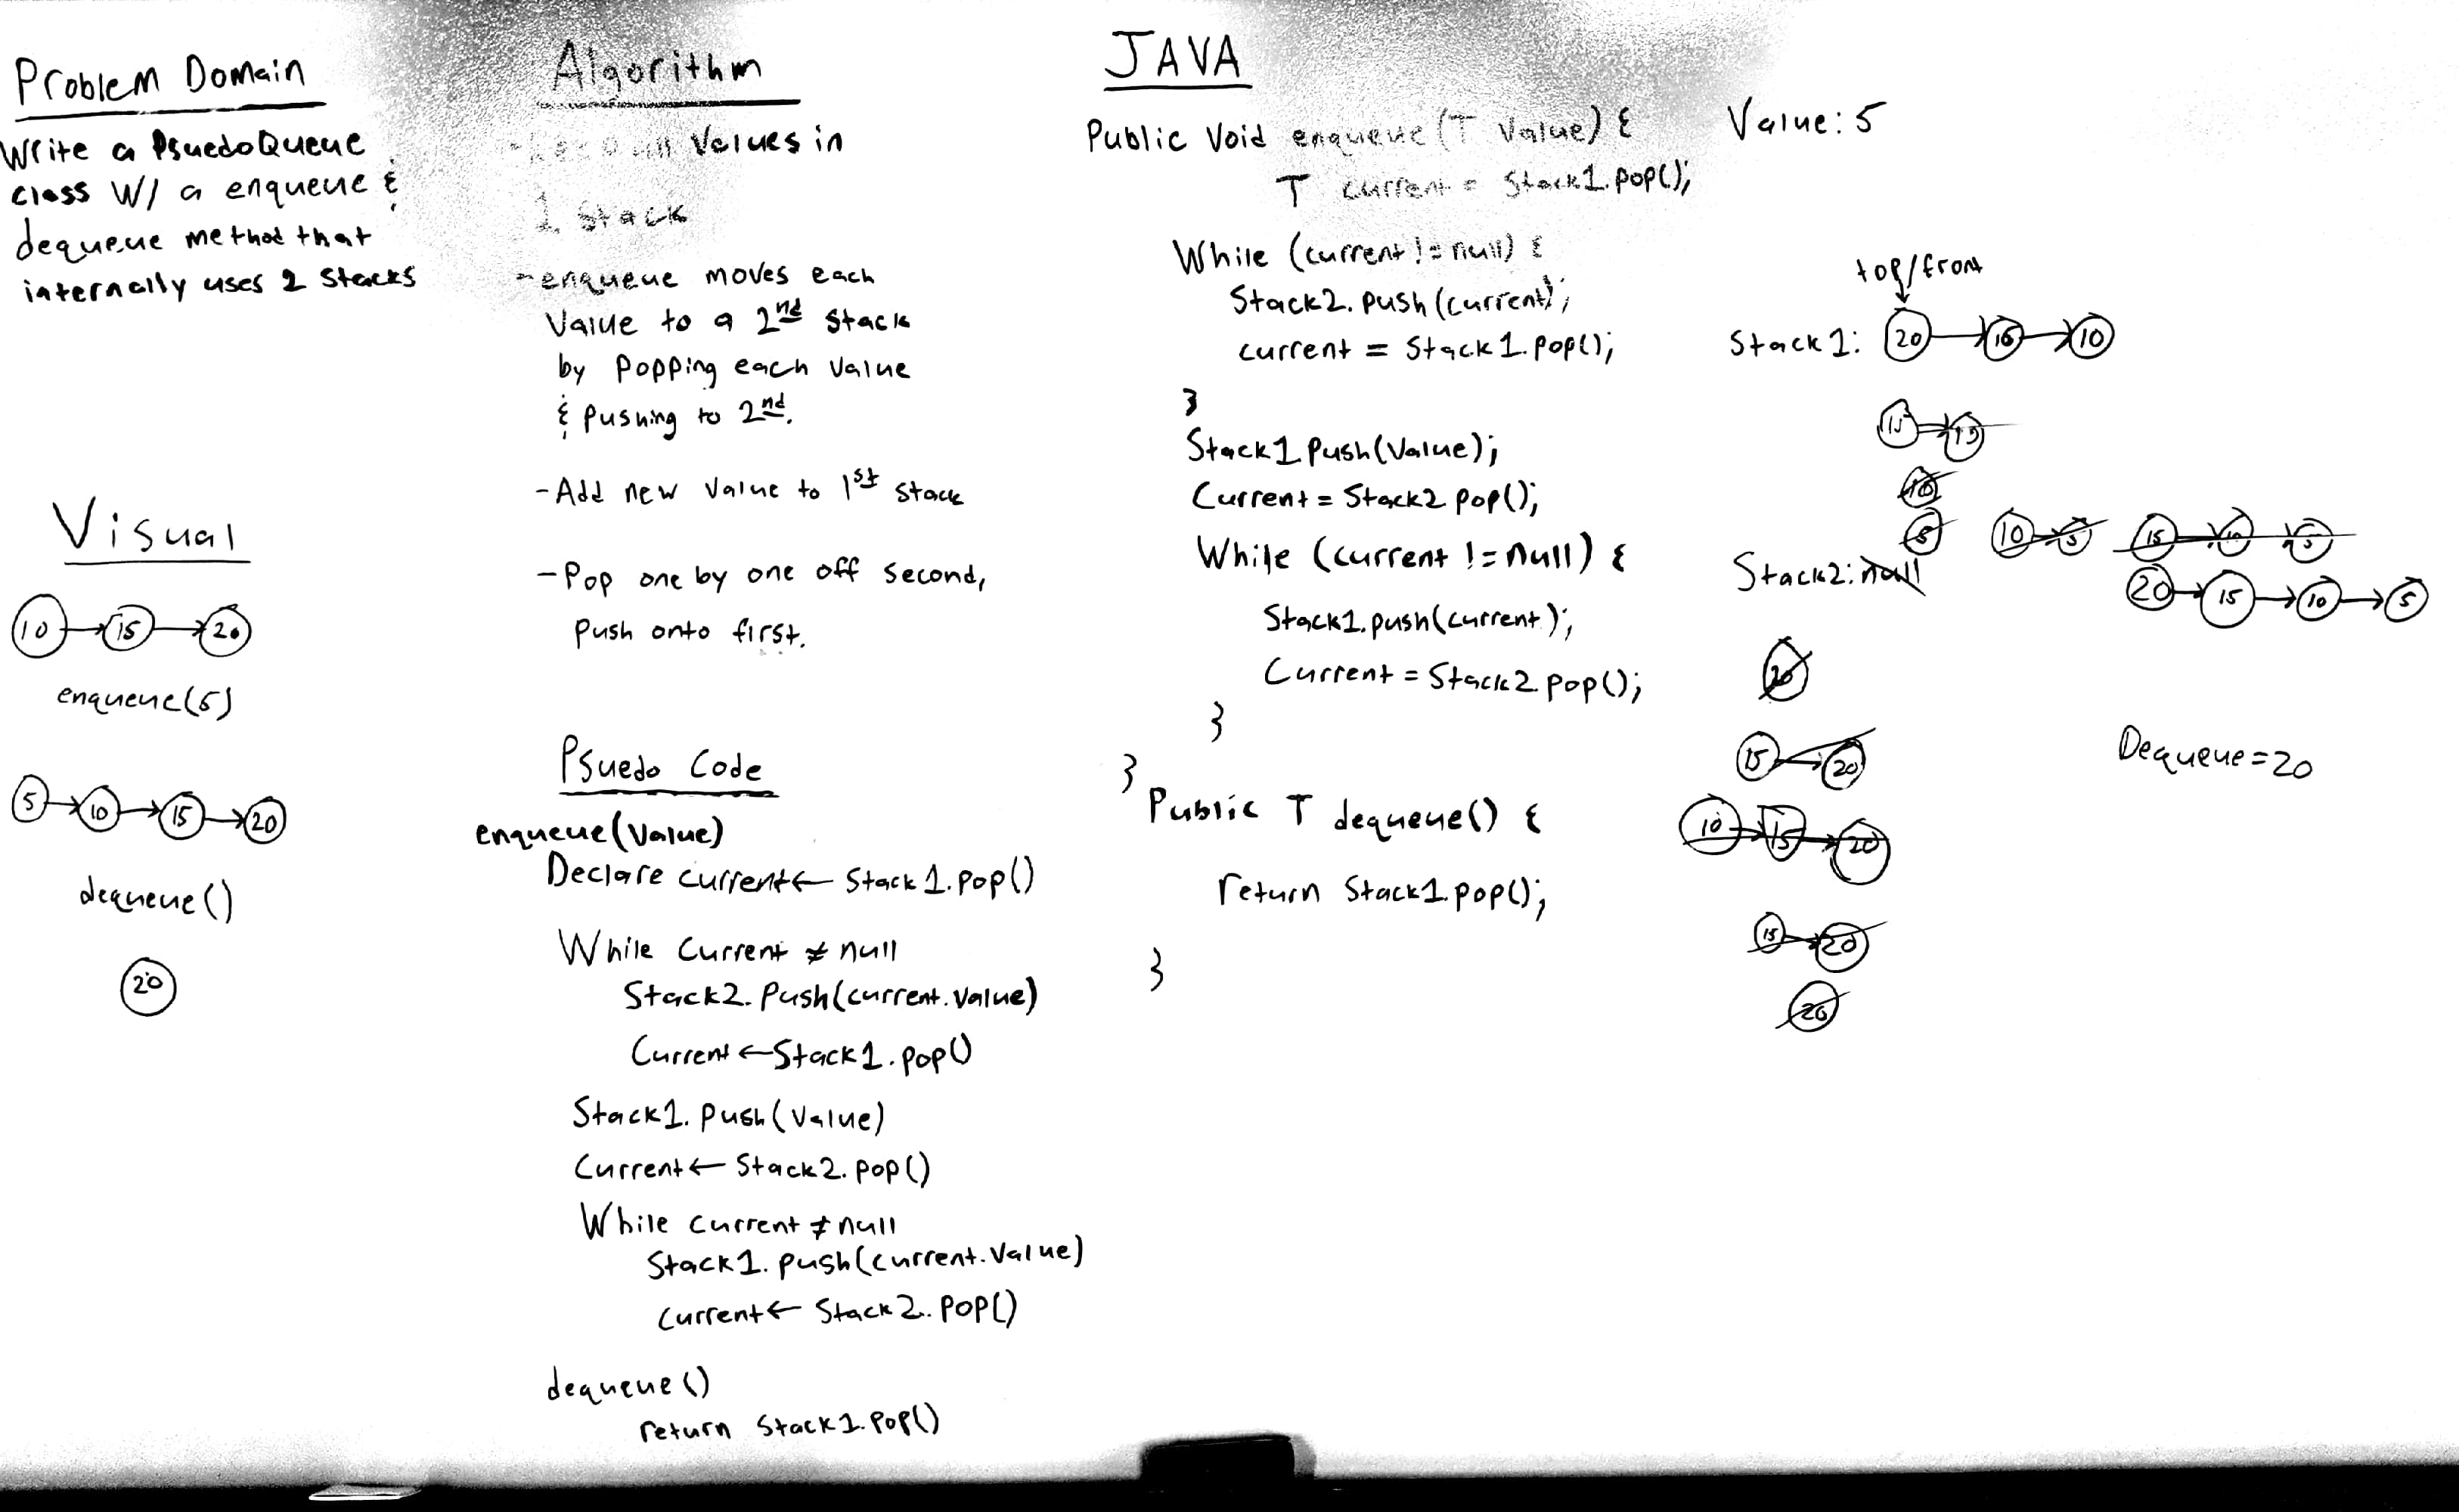 Problem Domain
Write a PsuedoQueue
class w/ a enqueue &
dequeue method that
internally uses 2 stacks
Visual
10 → 15 → 20
enqueue(5)
5 → 10 → 15 → 20
dequeue()
20
Algorithm
values in
1 stack
- enqueue moves each
value to a 2nd stack
by popping each value
& pushing to 2nd.
- Add new value to 1st stack
- Pop one by one off second,
push onto first.
Psuedo Code
enqueue(value)
Declare current ← Stack1.pop()
While current ≠ null
Stack2.push(current.value)
Current ← Stack1.pop()
Stack1.push(value)
Current ← Stack2.pop()
While current ≠ null
Stack1.push(current.value)
current ← Stack2.pop()
dequeue()
return Stack1.pop()
JAVA
Public Void enqueue(T Value) {
T current = Stack1.pop();
While (current != null) {
Stack2.push(current);
current = Stack1.pop();
}
Stack1.push(value);
Current = Stack2.pop();
While (current != null) {
Stack1.push(current);
Current = Stack2.pop();
}
}
Public T dequeue() {
return Stack1.pop();
}
Value: 5
top/front
Stack1: 20 → 15 → 10
15 → 10
10
5
10 → 5
15 → 10 → 5
Stack2: null
20 → 15 → 10 → 5
20
15 → 20
10 → 15 → 20
15 → 20
20
Dequeue = 20